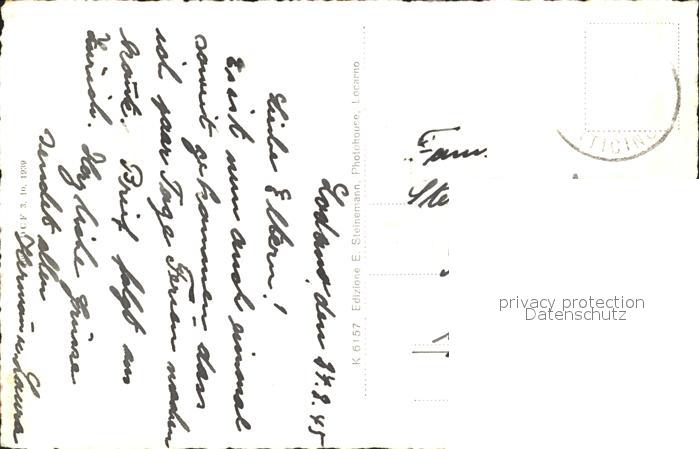 Lodano, den 27.8.45
Liebe Eltern!
Es ist nun auch einmal
soweit gekommen dass
ich paar Tage Ferien machen
kann. Brief folgt aus
Zürich. Herzliche Grüsse
sendet allen
Hermann u. Laura
C. F 3. 10. 1939
K 6157 Edizione E. Steinemann, Photohouse, Locarno
Fam.
Ste
TICINO
privacy protection
Datenschutz